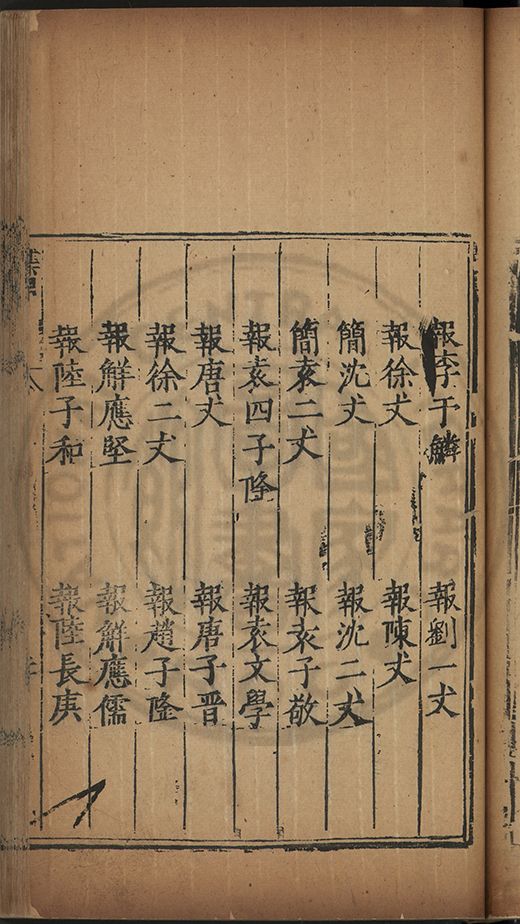 報李于鱗 報劉一丈
報徐丈 報陳丈
簡沈丈 報沈二丈
簡袁二丈 報袁子敬
報袁四子隆 報袁文學
報唐丈 報唐子晋
報徐二丈 報趙子隆
報鮮應堅 報鮮應儒
報陸子和 報陸長庚